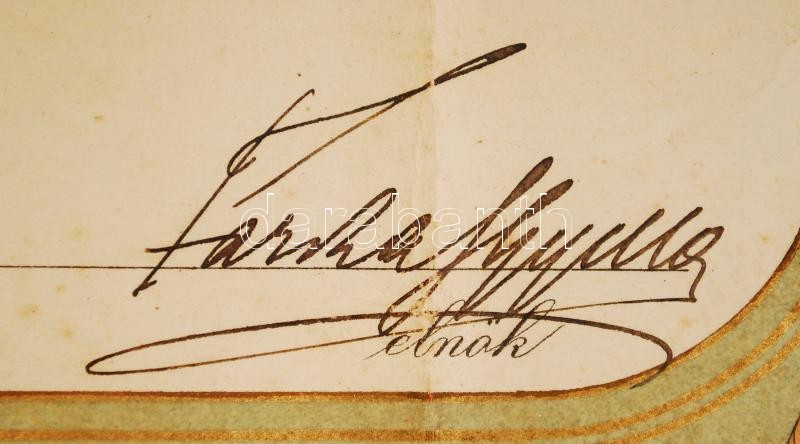 Farkas Gyula
darabanth
elnök